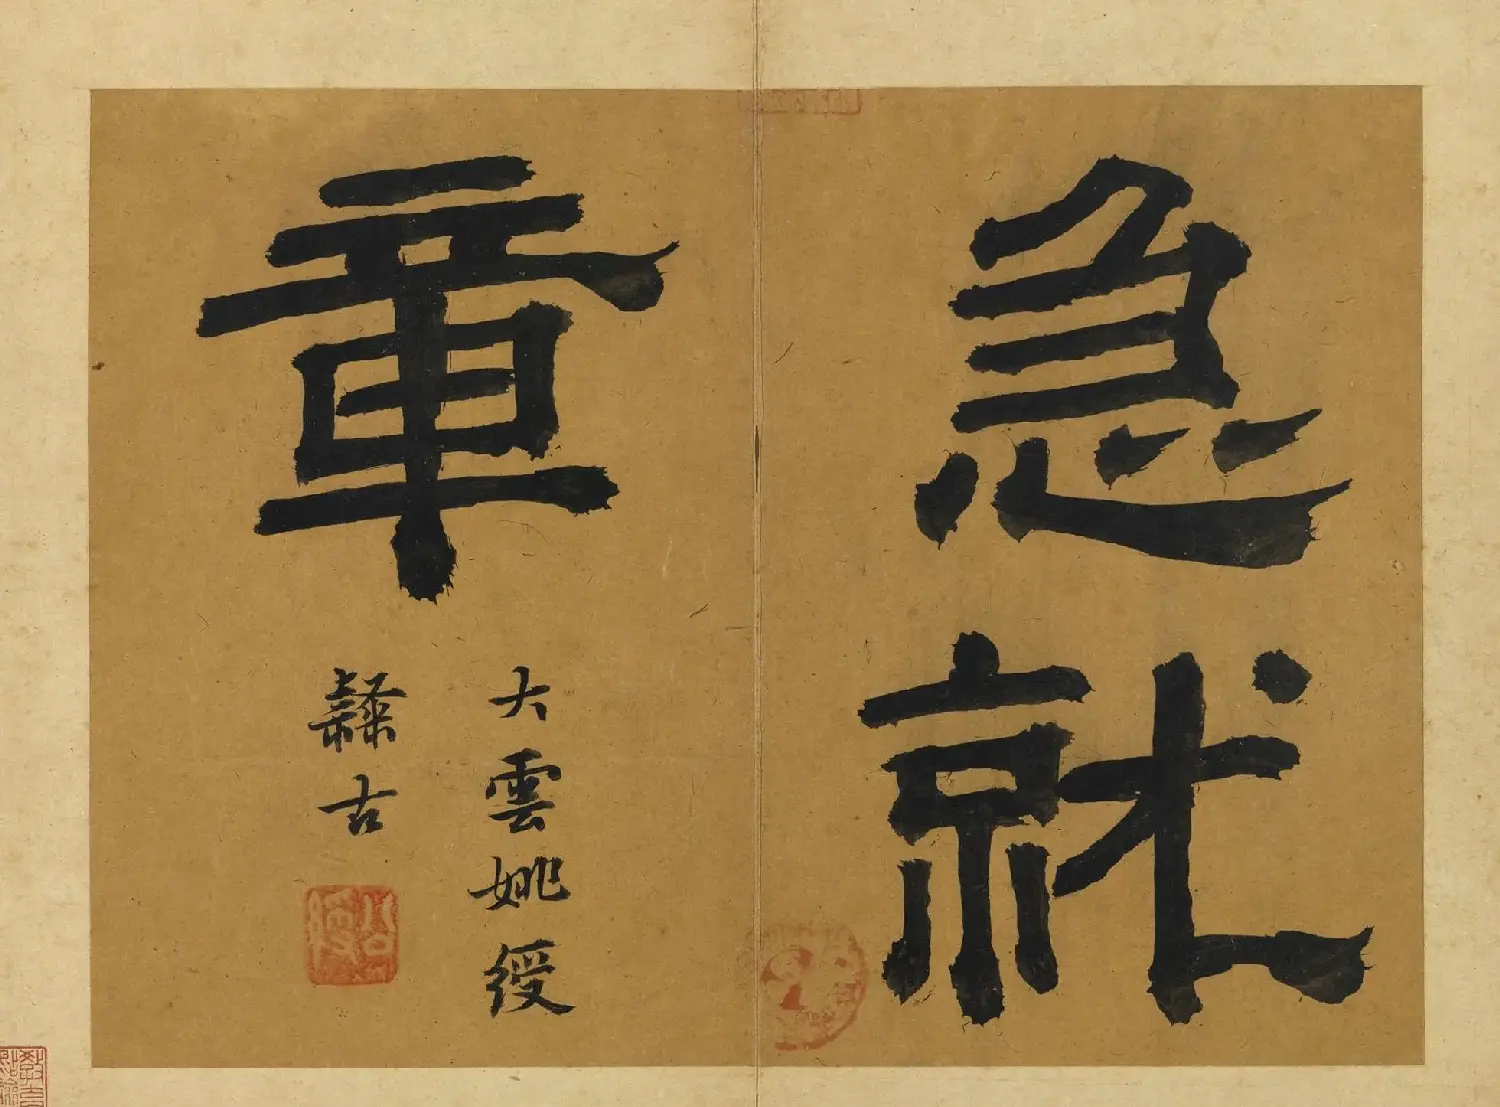 急就
章
大雲姚綬
隸古
公綬